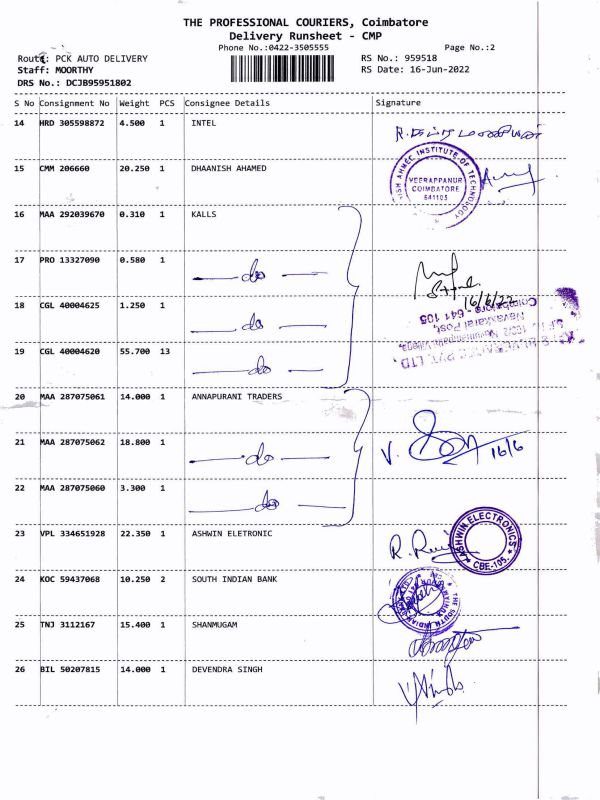 THE PROFESSIONAL COURIERS, Coimbatore
Delivery Runsheet - CMP
Phone No.:0422-3505555
Page No.:2
Route: PCK AUTO DELIVERY
RS No.: 959518
Staff: MOORTHY
RS Date: 16-Jun-2022
DRS No.: DCJB95951802
S No Consignment No Weight PCS Consignee Details Signature
14 HRD 305598872 4.500 1 INTEL
15 CMM 206660 20.250 1 DHAANISH AHAMED
INSTITUTE OF TECHNOLOGY
VEERAPPANUR
COIMBATORE
641105
16 MAA 292039670 0.310 1 KALLS
17 PRO 13327090 0.580 1 do
16/6/22
18 CGL 40004625 1.250 1 do
Coimbatore - 641 105
Navakkarai Post,
19 CGL 40004620 55.700 13 do
PVT. LTD.
20 MAA 287075061 14.000 1 ANNAPURANI TRADERS
21 MAA 287075062 18.800 1 do
16/6
22 MAA 287075060 3.300 1 do
23 VPL 334651928 22.350 1 ASHWIN ELETRONIC
ASHWIN ELECTRONICS
CBE-105.
24 KOC 59437068 10.250 2 SOUTH INDIAN BANK
THE SOUTH INDIAN
25 TNJ 3112167 15.400 1 SHANMUGAM
26 BIL 50207815 14.000 1 DEVENDRA SINGH